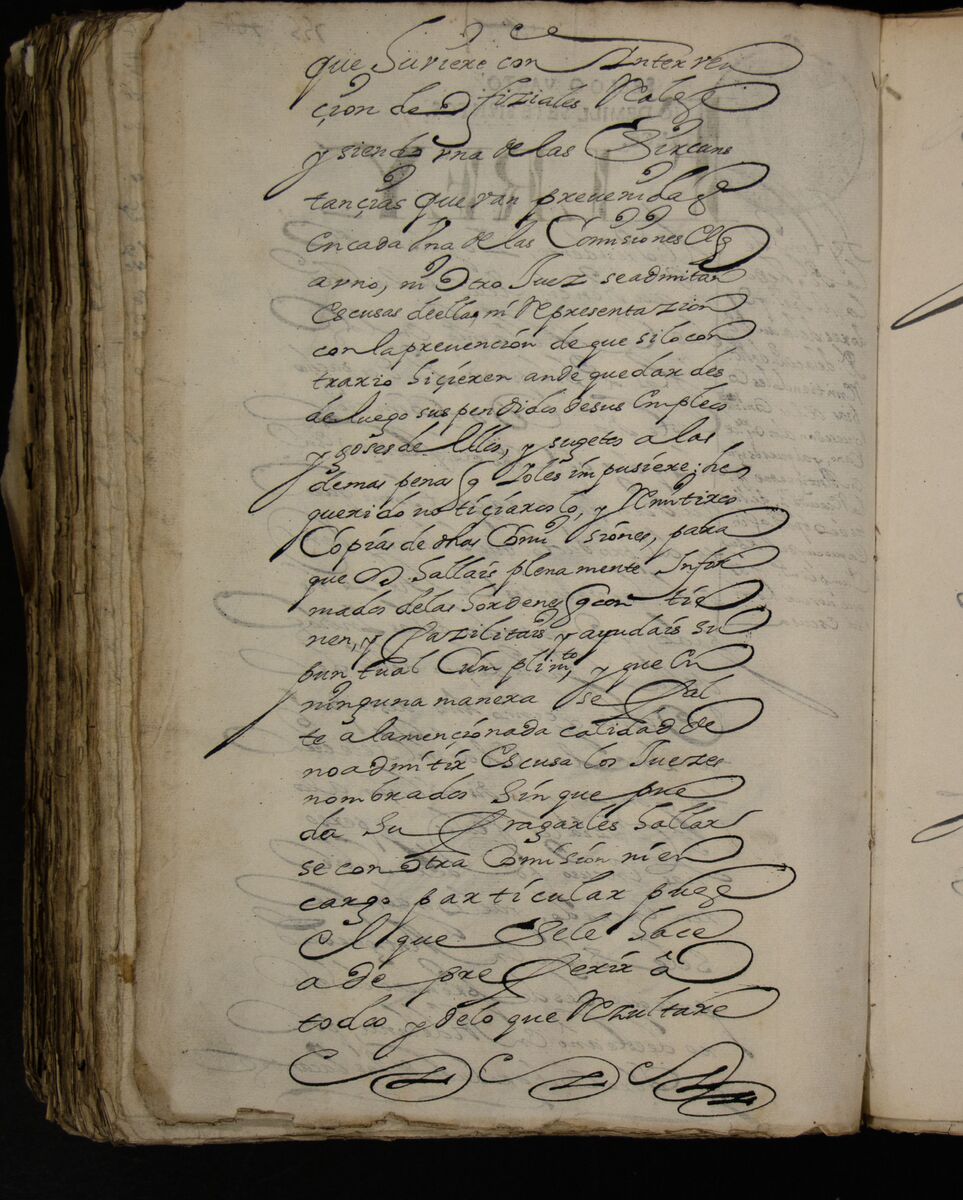 que huviere con Interven
çion de Ofiziales Reales
y siendo vna de las Circuns
tançias que van prevenidas
en cada vna de las Comisiones el q
a vno, ni Otro Juez se admitan
Escusas deellas ni Representazion
con la prevençion de que si lo con
trario hiçieren an de quedar des
de luego suspendidos de sus Empleos
y gozes de Ellos, y sugetos a las
demas penas q Yo les impusiere; he
querido notiçiaroslo, y Remitiros
Copias de dhas Comisiones, para
que os hallais plenamente Infor
mados de las hordenes q con tie
nen, y fazilitais y ayudais su
puntual Cumplimto, y que En
ninguna manera se fal
te a la mençionada calidad de
no admitir Escusa los Juezes
nombrados sin que pue
da sufragarles hallar
se con Otra Comision ni en
cargo particular pues
El que se le hace
a de preferir â
todos y de lo que Resultare